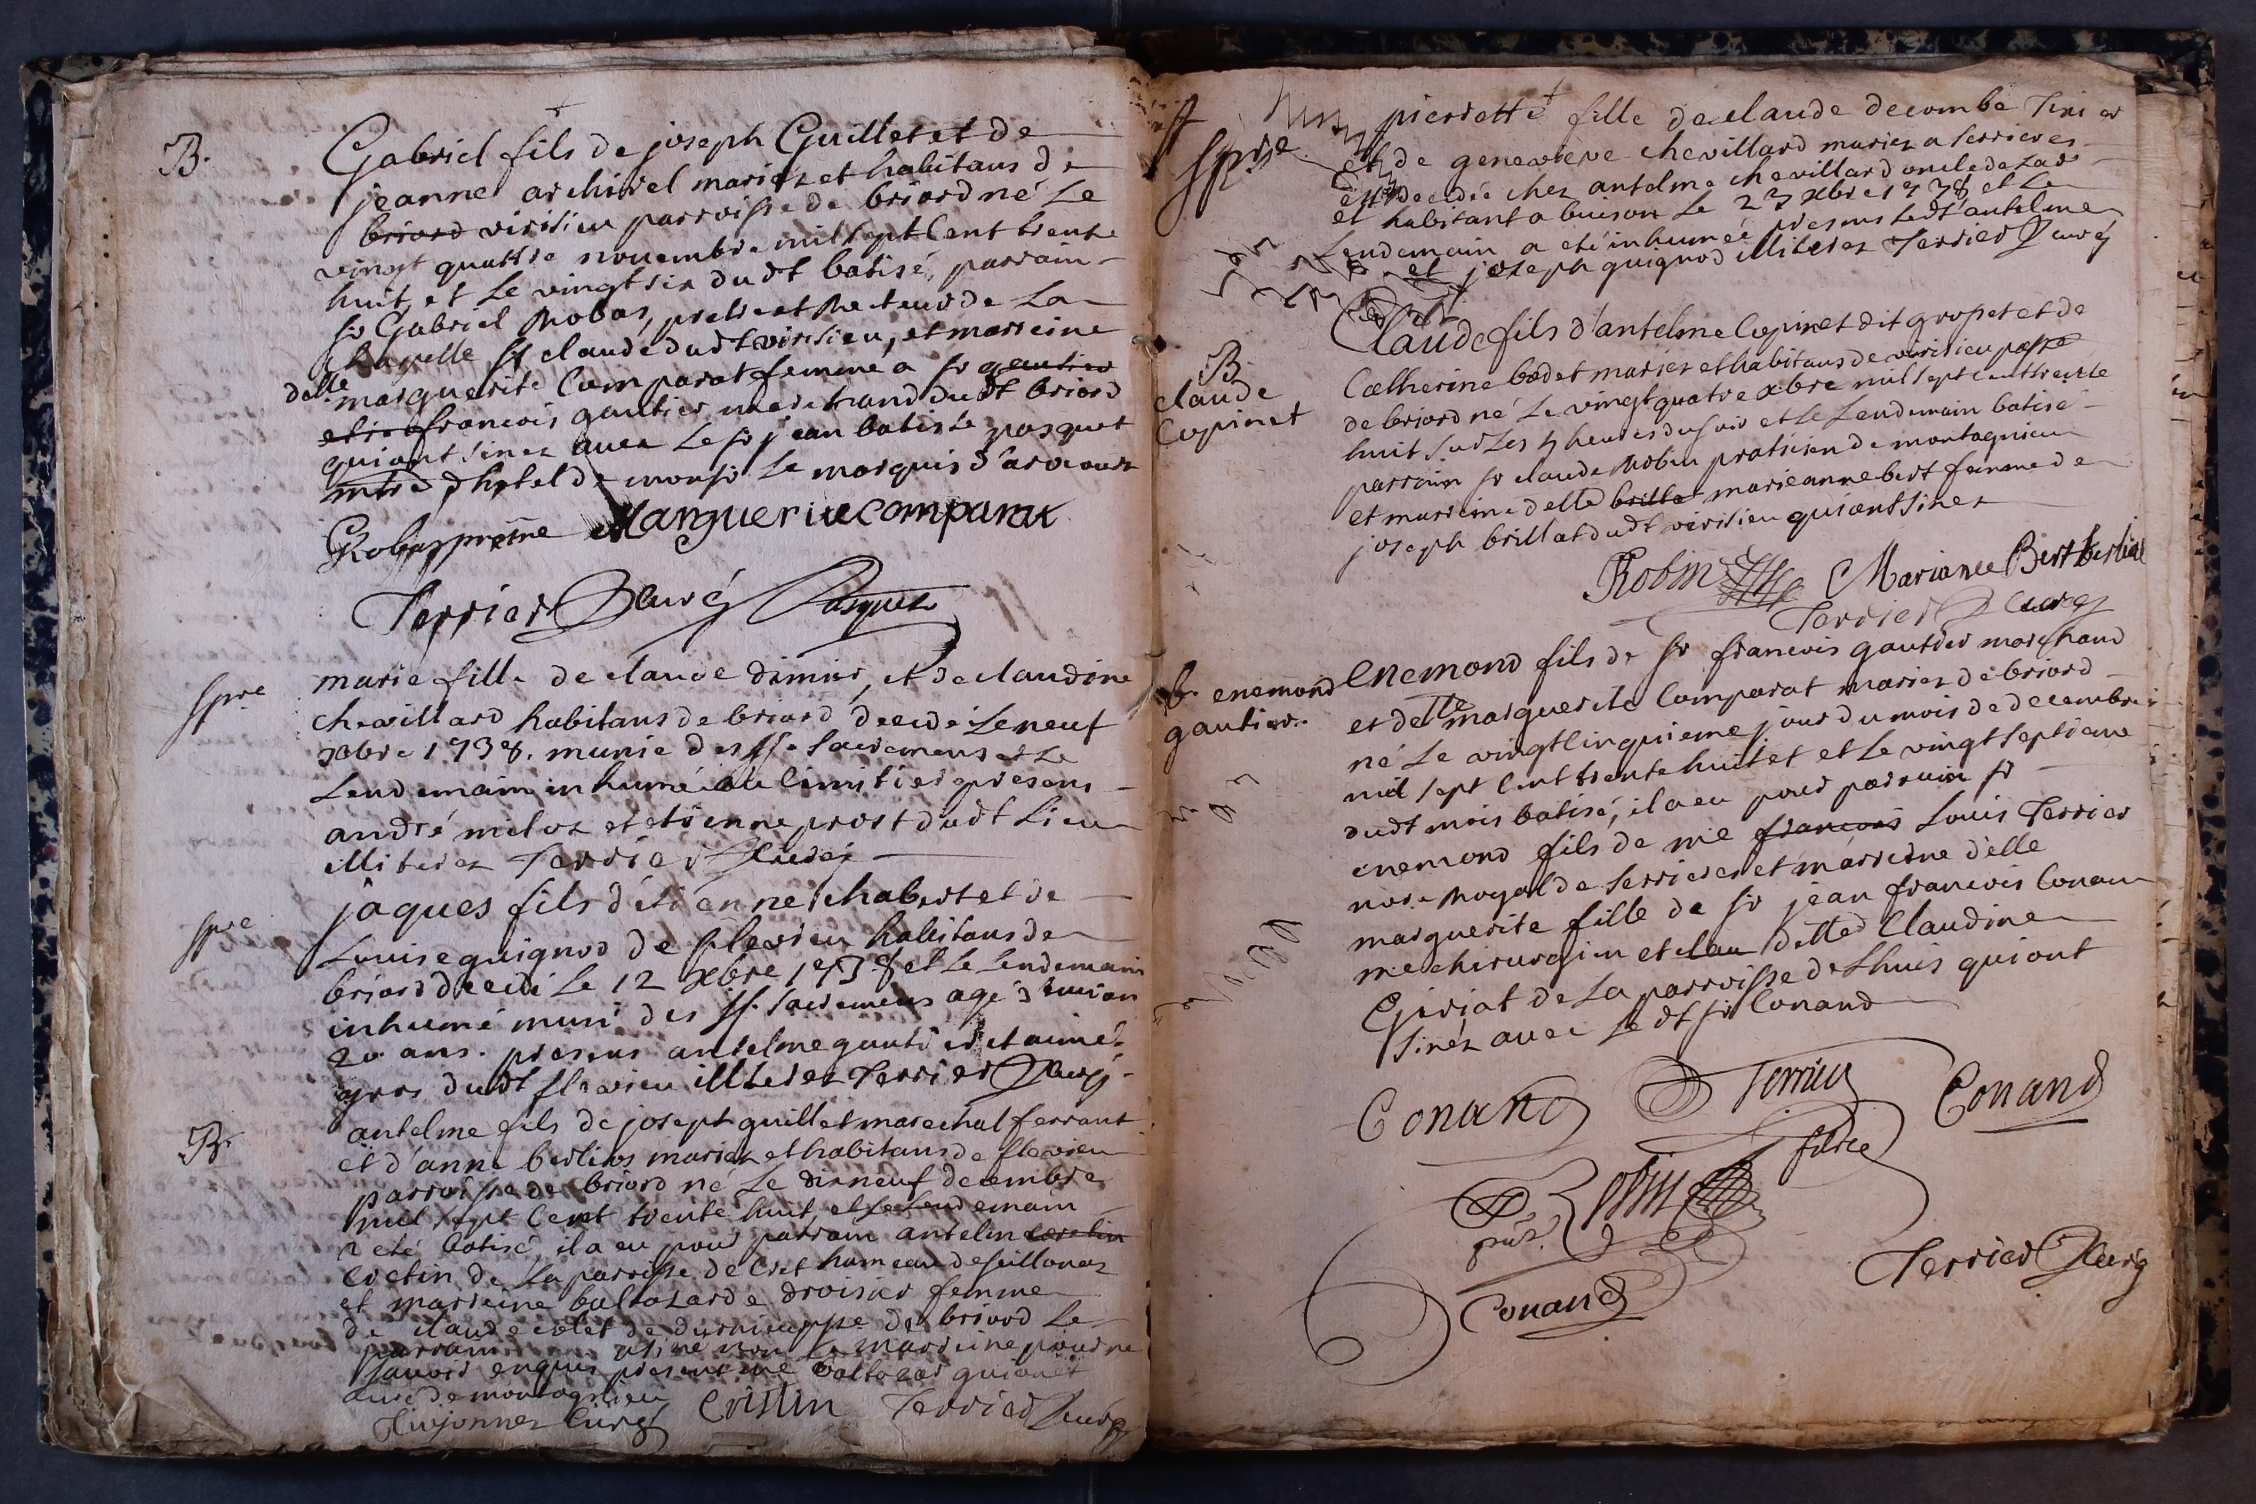 B.
Gabriel fils de joseph Guillet et de
jeanne archirel mariez et habitans de
briord virisieu parroisse de briord né le
vingt quattre novembre mil sept cent trente
huit, et le vingt six dudt batisé, parrain
sr Gabriel Robas, pretre et Recteur de la
chapelle st claude dudt virisieu, et marreine
delle marguerite Comparat femme a sr gautier
françois gautier marchand dudt briord
qui ont sinez avec le sr jean batiste pasquet
mtre d'hotel de monsr le marquis d'arcourt
GRobas pretre Marguerite comparat
Terrier Curé Pasquet
Spre
marie fille de claude dimier, et de claudine
chevillard habitans de briord decedé le neuf
xbre 1738. munie des sts sacremens et le
lendemain inhumé au cimitier presens
andré miloz et etienne prost dudt lieu
illiterez Terrier Curé
Spre
jaques fils d'étienne chabert et de
Louise guignod de flevieu habitans de
briord decedé le 12 xbre 1738 et le lendemain
inhumé muni des sts sacremens agé d'environ
20 ans. presens antelme gautier et aimé
gros dudt flevieu illiterez Terrier Curé
B.
antelme fils de joseph guillet marechal ferrant
et d'anne berlioz mariez et habitans de flevieu
parroisse de briord né le dixneuf decembre
mil sept cent trente huit, et le lendemain
a eté batisé, il a eu pour parrain antelme
cretin de la parroisse de
et marreine baltazarde droisier femme
de claude colet de briord le
parrain siné non la marreine pour ne
savoir enquis presens me baltazar guionet
curé de montagnieu
curé Cristin Terrier Curé
Spre
pierrette fille de claude decombe
et de genevieve chevillard mariez a serrieres
est decedée chez antelme chevillard oncle de
et habitant a buison le 27 xbre 1738 et le
lendemain a eté inhumée presens ledt antelme
et joseph guignod illiterez Terrier Curé
B.
claude
Copinet
Claude fils d'antelme Copinet dit groset et de
Catherine bodet mariez et habitans de virisieu psse
de briord né le vingt quatre xbre mil sept cent trente
huit sur les 5 heures du soir et le lendemain batisé
parrain sr claude Robin praticien de montagnieu
et marreine delle brillat marieanne bert femme de
joseph brillat dudt virisieu qui ont sinez
Robin Marianne Bert berliat
Terrier Curé
b. enemond
gautier.
Enemond fils de sr françois gautier marchand
et delle marguerite Comparat mariez de briord
né le vingt cinquieme jour du mois de decembre
mil sept cent trente huit et le vingt septieme
dudt mois batisé, il a eu pour parrain sr
enemond fils de me françois Louis Terrier
nore Royal de serrieres et marreine delle
marguerite fille de sr jean françois Conand
me chirurgien et clau delle Claudine
Giriat de la parroisse de Lhuis qui ont
sinéz avec ledt sr Conand
Conand Terrier Conand
filice
Robin
pnt.
Conand Terrier Curé